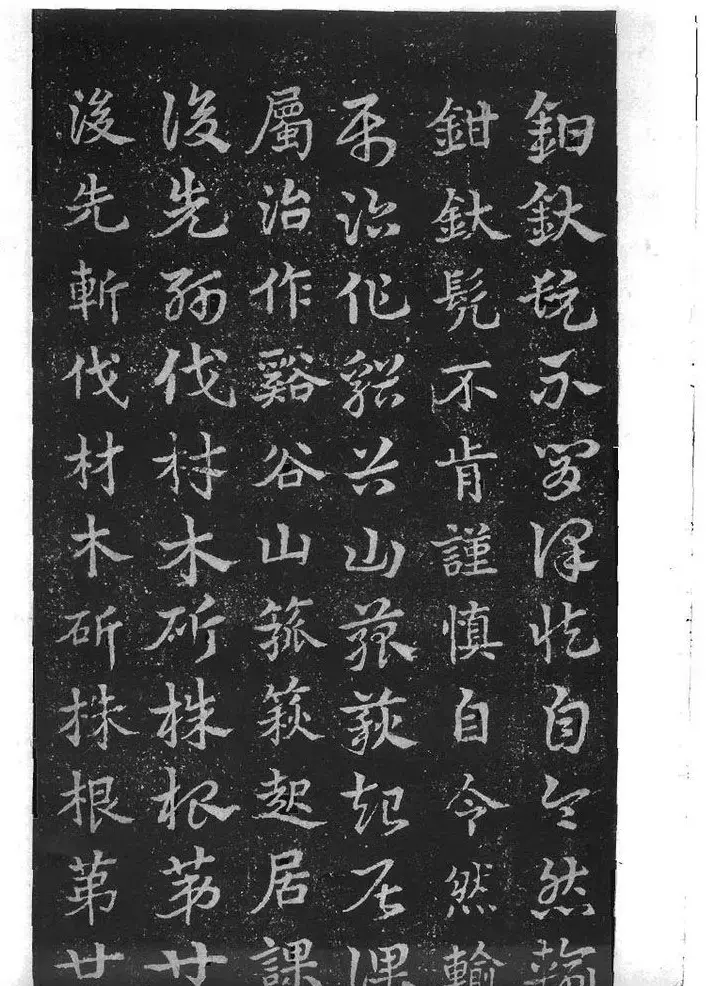 鉗釱髡不肯謹慎自令然輸
鉗釱髡不肯謹慎自令然輸
屬治作谿谷山箛篍起居課
屬治作谿谷山箛篍起居課
後先斬伐材木斫株根苐廿
後先斬伐材木斫株根苐廿